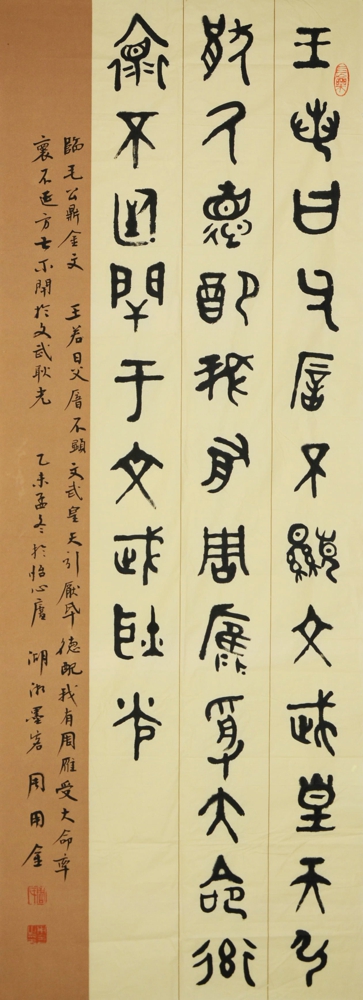 王若曰父厝不顯文武皇天引
厭氒德配我有周雁受大命率
褱不廷閈于文武耿光
臨毛公鼎金文 王若曰父厝不顯文武皇天引厭氒德配我有周雁受大命率
褱不廷方亡不閈於文武耿光 乙未孟冬於怡心廬 湖湘墨客 周用金